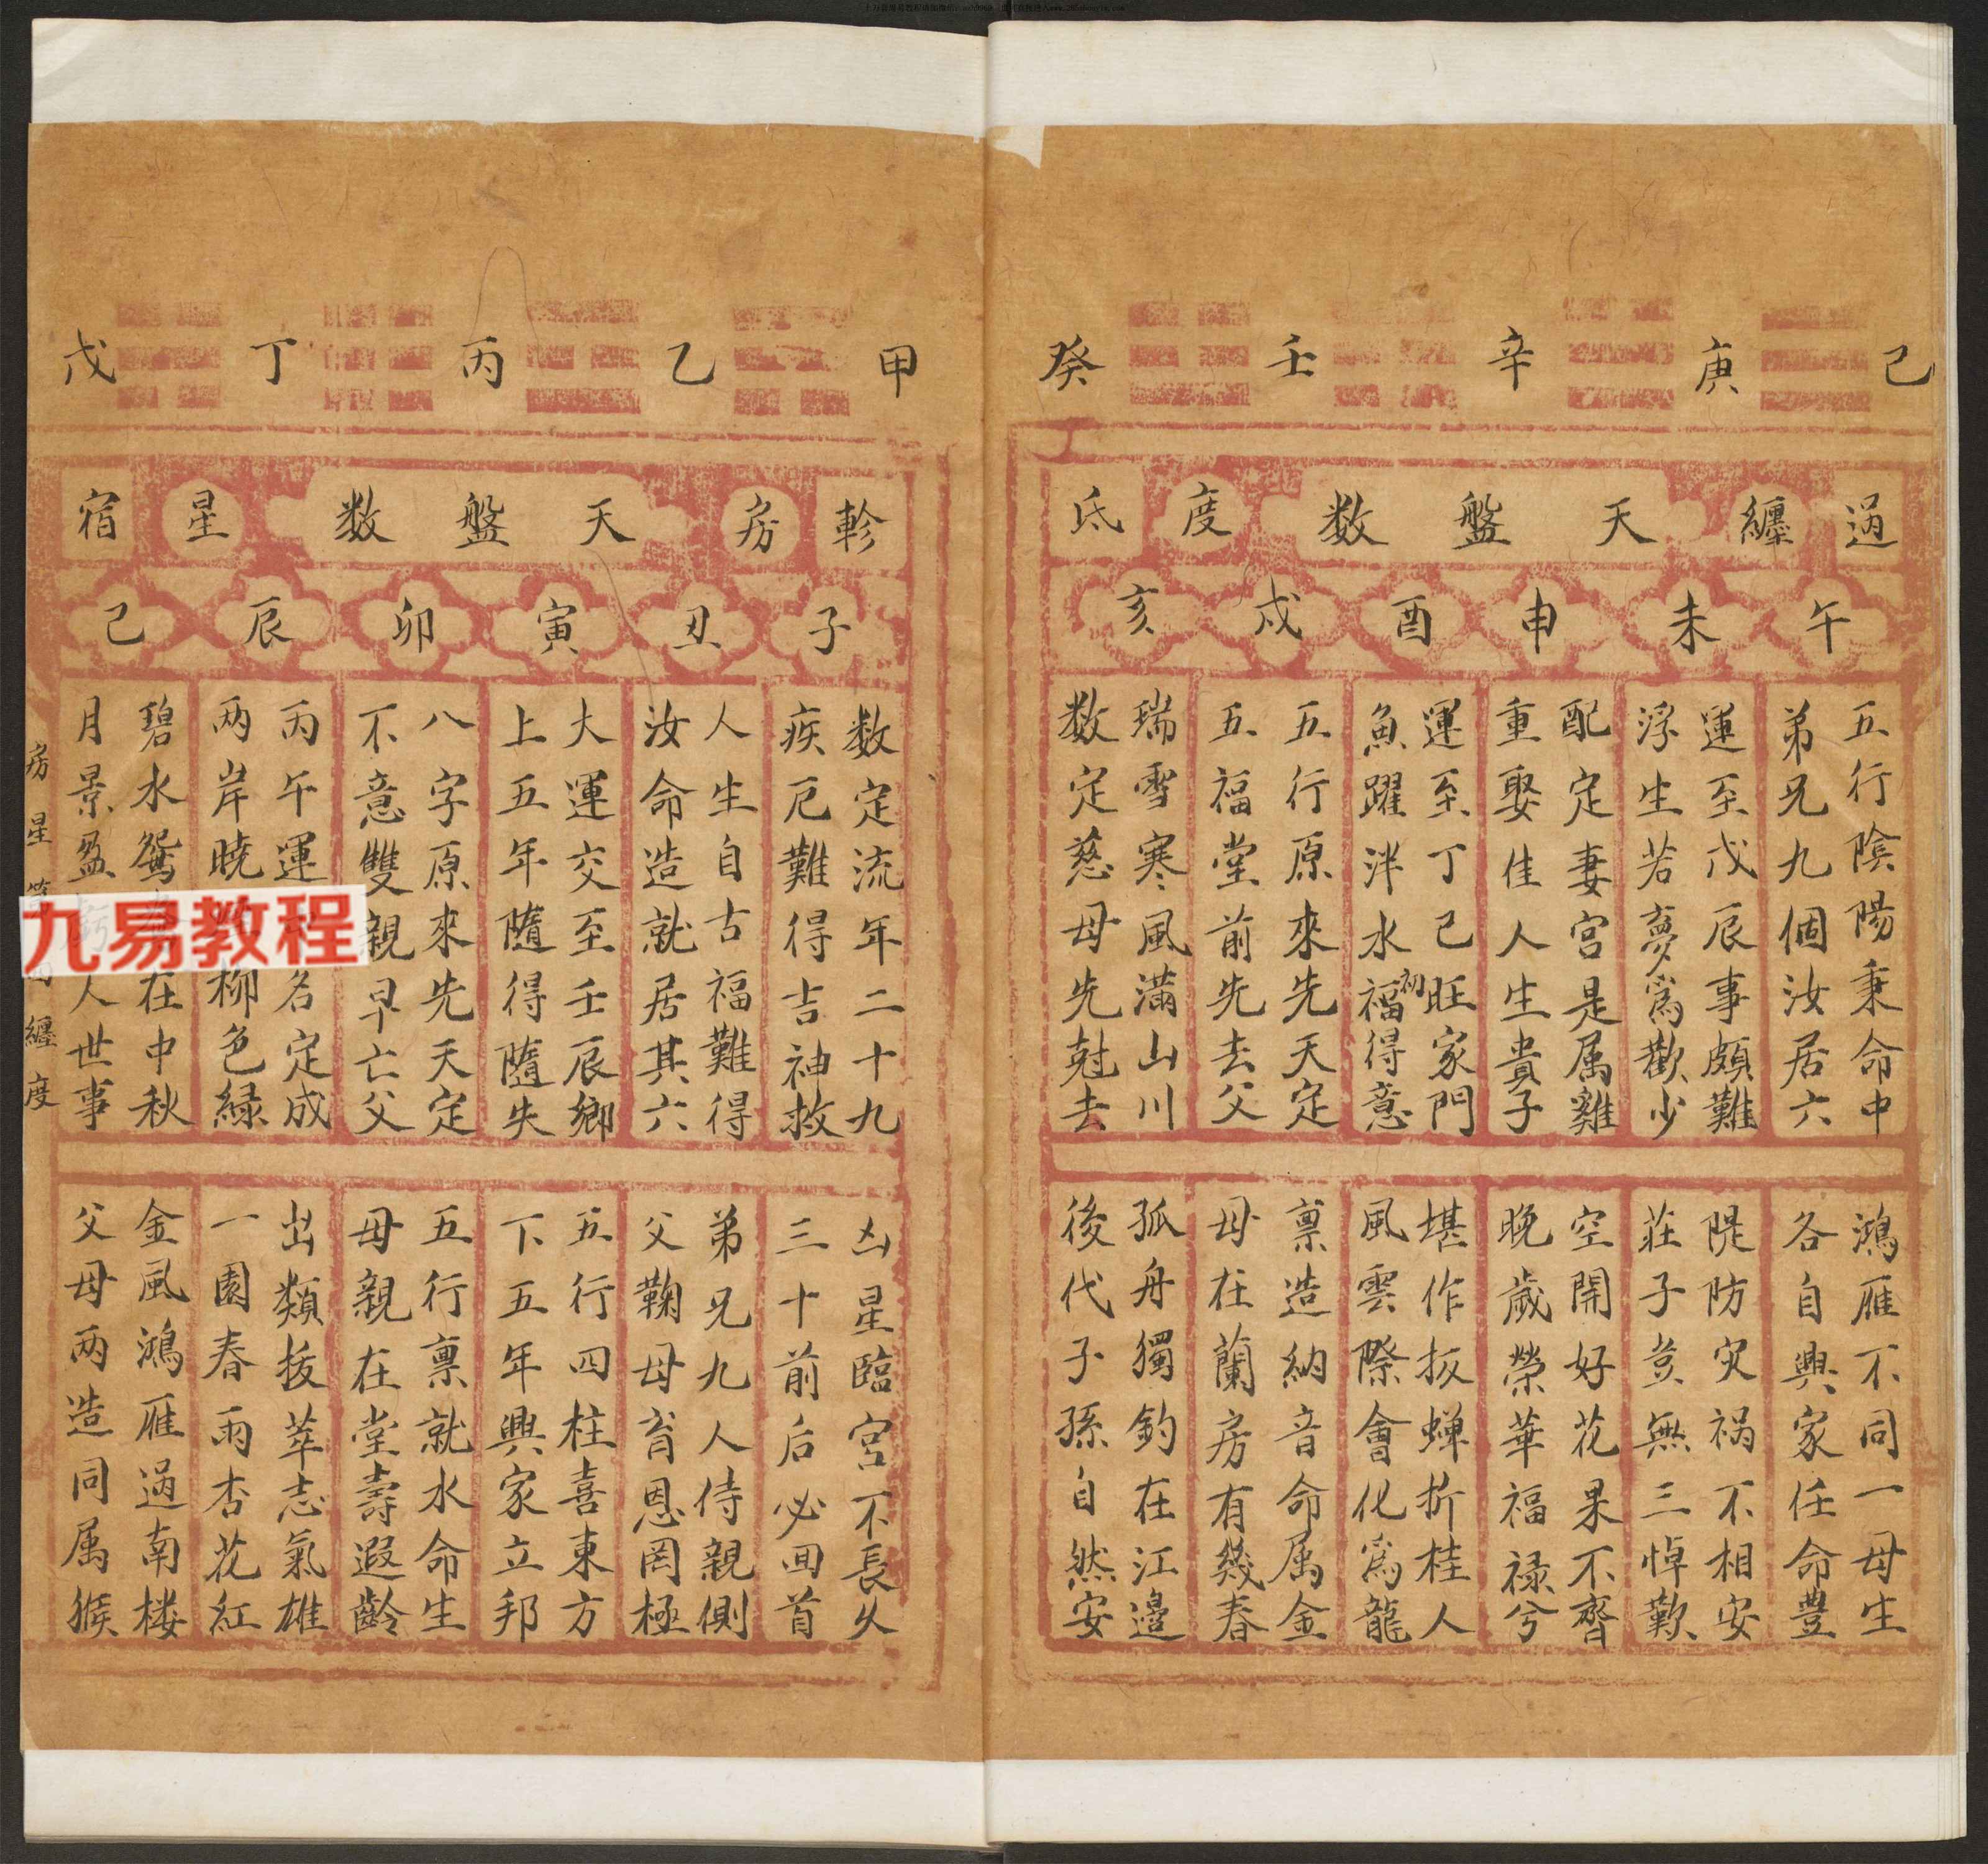 己 庚 辛 壬 癸
過 纏 天 盤 数 度 氐
午 未 申 酉 戌 亥
五行陰陽秉命中
弟兄九個汝居六
運至戊辰事頗難
浮生若夢為歡少
配定妻宮是属雞
重娶佳人生貴子
運至丁己旺家門
魚躍泮水福得意
初
五行原來先天定
五福堂前先去父
瑞雪寒風滿山川
数定慈母先尅去
鴻雁不同一母生
各自興家任命豊
隄防灾祸不相安
莊子豈無三悼歎
空開好花果不齊
晚歲榮華福禄兮
堪作扳蝉折桂人
風雲際會化為龍
禀造納音命属金
母在蘭房有幾春
孤舟獨釣在江邉
後代子孫自然安
甲 乙 丙 丁 戊
軫 房 天 盤 数 星 宿
子 丑 寅 卯 辰 己
数定流年二十九
疾厄難得吉神救
人生自古福難得
汝命造就居其六
大運交至壬辰鄉
上五年隨得隨失
八字原來先天定
不意雙親早亡父
丙午運名定成
两岸曉柳色緑
碧水鴛在中秋
月景盈虧人世事
凶星臨宮不長久
三十前后必回首
弟兄九人侍親側
父鞠母育恩罔極
五行四柱喜東方
下五年興家立邦
五行禀就水命生
母親在堂壽遐齡
出類拔萃志氣雄
一園春雨杏花紅
金風鴻雁過南楼
父母两造同属猴
房星纏度
九易教程